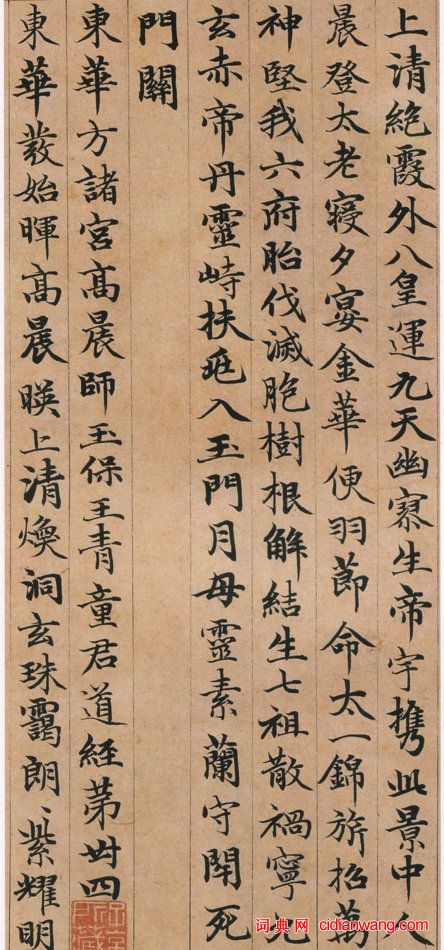 上清絶霞外八皇運九天幽寥生帝宇攜此景中人
晨登太老寢夕宴金華便羽節命太一錦旂招萬
神堅我六府胎伐滅胞樹根解結生七祖散禍寧九
玄赤帝丹靈峙扶入玉門月母靈素蘭守閇死
門關
東華方諸宮高晨師玉保王青童君道經苐卅四
東華發始暉高晨暎上清煥洞玄珠靄朗〻紫耀明
词典网 cidianwang.com